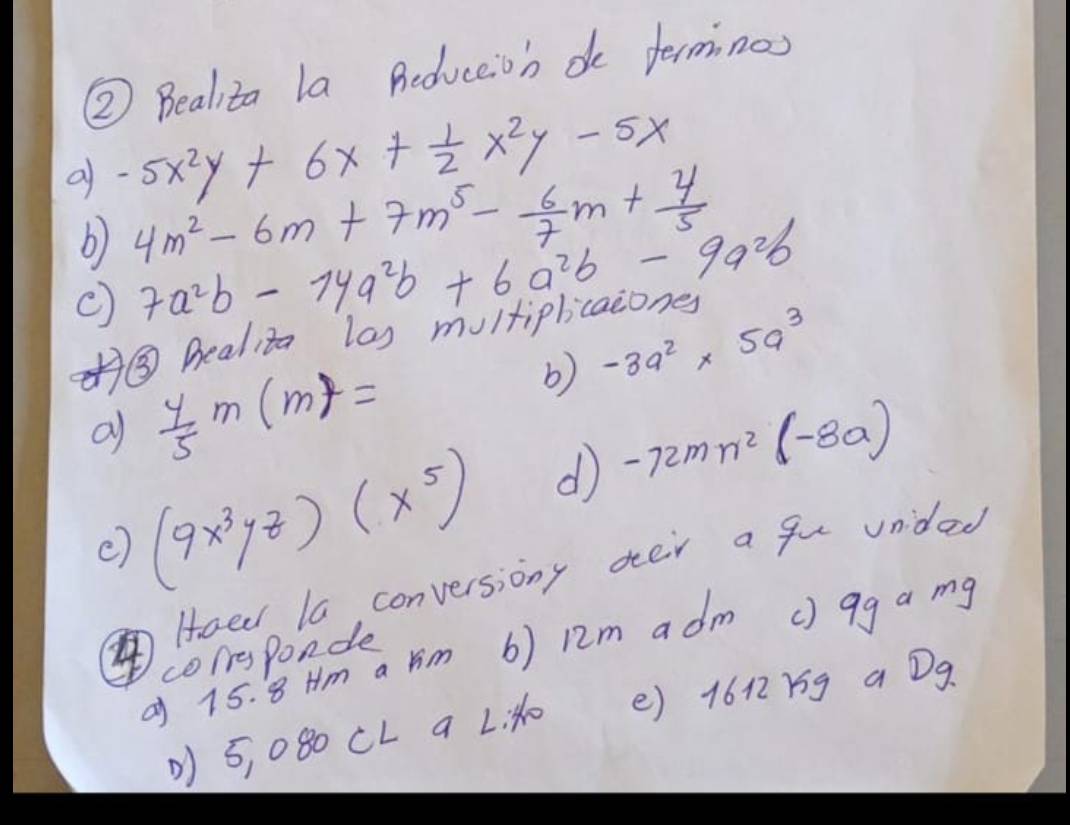 ② Realiza la Reducción de terminos
a) -5x²y + 6x + 1/2 x²y - 5x
b) 4m² - 6m + 7m⁵ - 6/7 m + 4/5
c) 7a²b - 14a²b + 6a²b - 9a²b
③ Realiza las multiplicaciones
a) 4/5 m (m) =
b) -3a² x 5a³
c) (9x³yz) (x⁵)
d) -12mn² (-8a)
④ Hacer la conversión y decir a que unidad
corresponde
a) 15.8 Hm a Km b) 12m a dm c) 9g a mg
D) 5,080 CL a Litro e) 1612 Kg a Dg.